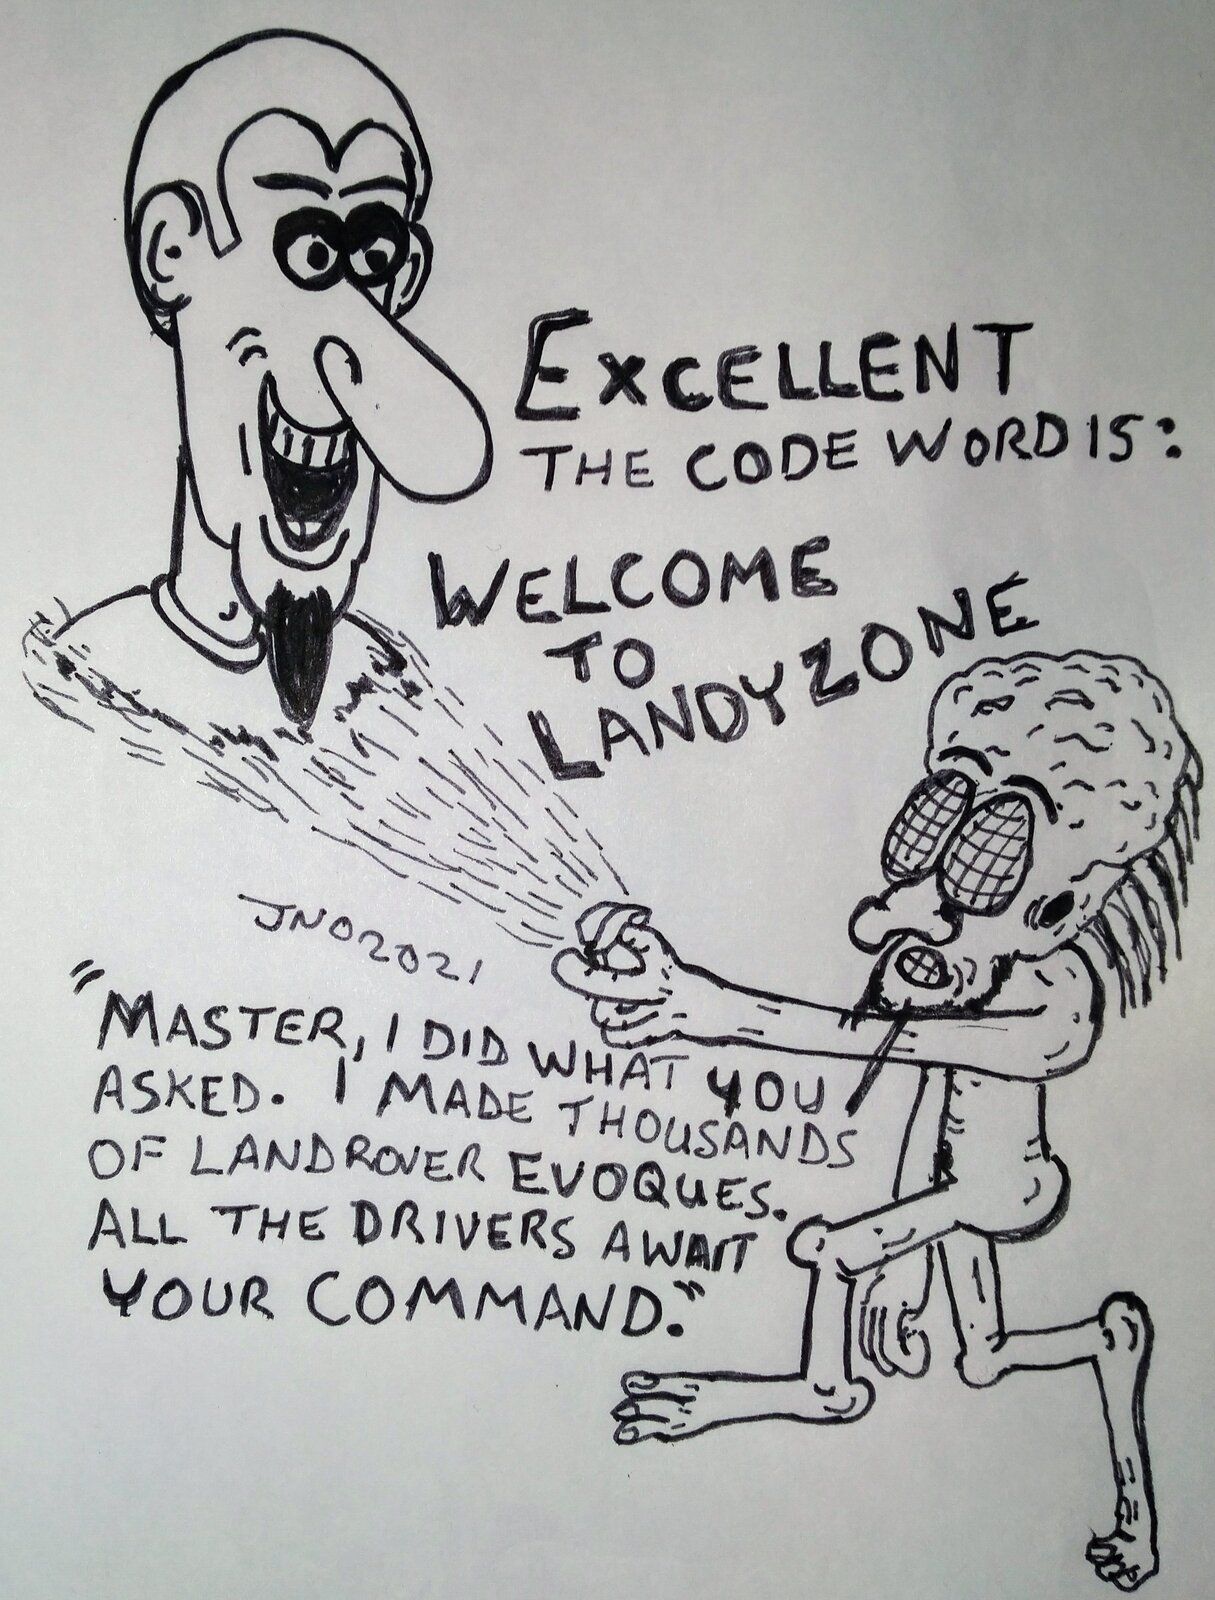 EXCELLENT
THE CODE WORD IS:
WELCOME
TO
LANDYZONE
JNO2021
"MASTER, I DID WHAT YOU
ASKED. I MADE THOUSANDS
OF LANDROVER EVOQUES.
ALL THE DRIVERS AWAIT
YOUR COMMAND."